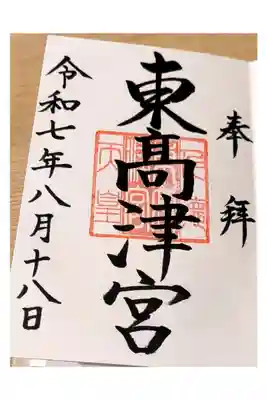 奉拝
東髙津宮
令和七年八月十八日